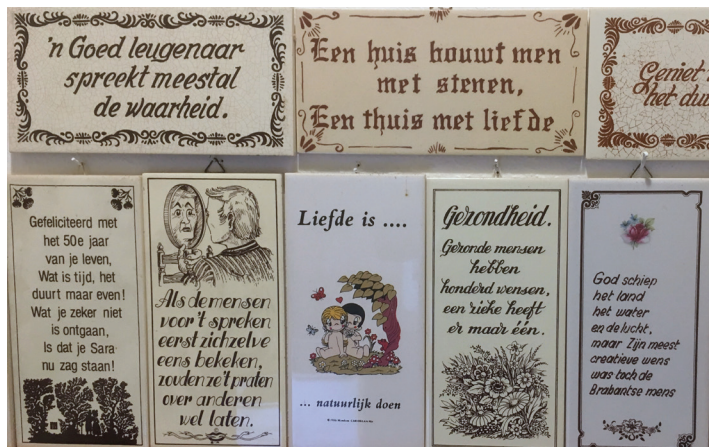 'n Goed leugenaar
spreekt meestal
de waarheid.
Een huis bouwt men
met stenen,
Een thuis met liefde
Geniet
het
Gefeliciteerd met
het 50e jaar
van je leven,
Wat is tijd, het
duurt maar even!
Wat je zeker niet
is ontgaan,
Is dat je Sara
nu zag staan!
Als de mensen
voor 't spreken
eerst zichzelve
eens bekeken,
zouden ze't praten
over anderen
wel laten.
Liefde is ....
... natuurlijk doen
Gezondheid.
Gezonde mensen
hebben
honderd wensen,
een zieke heeft
er maar één.
God schiep
het land
het water
en de lucht,
maar Zijn meest
creatieve wens
was toch de
Brabantse mens